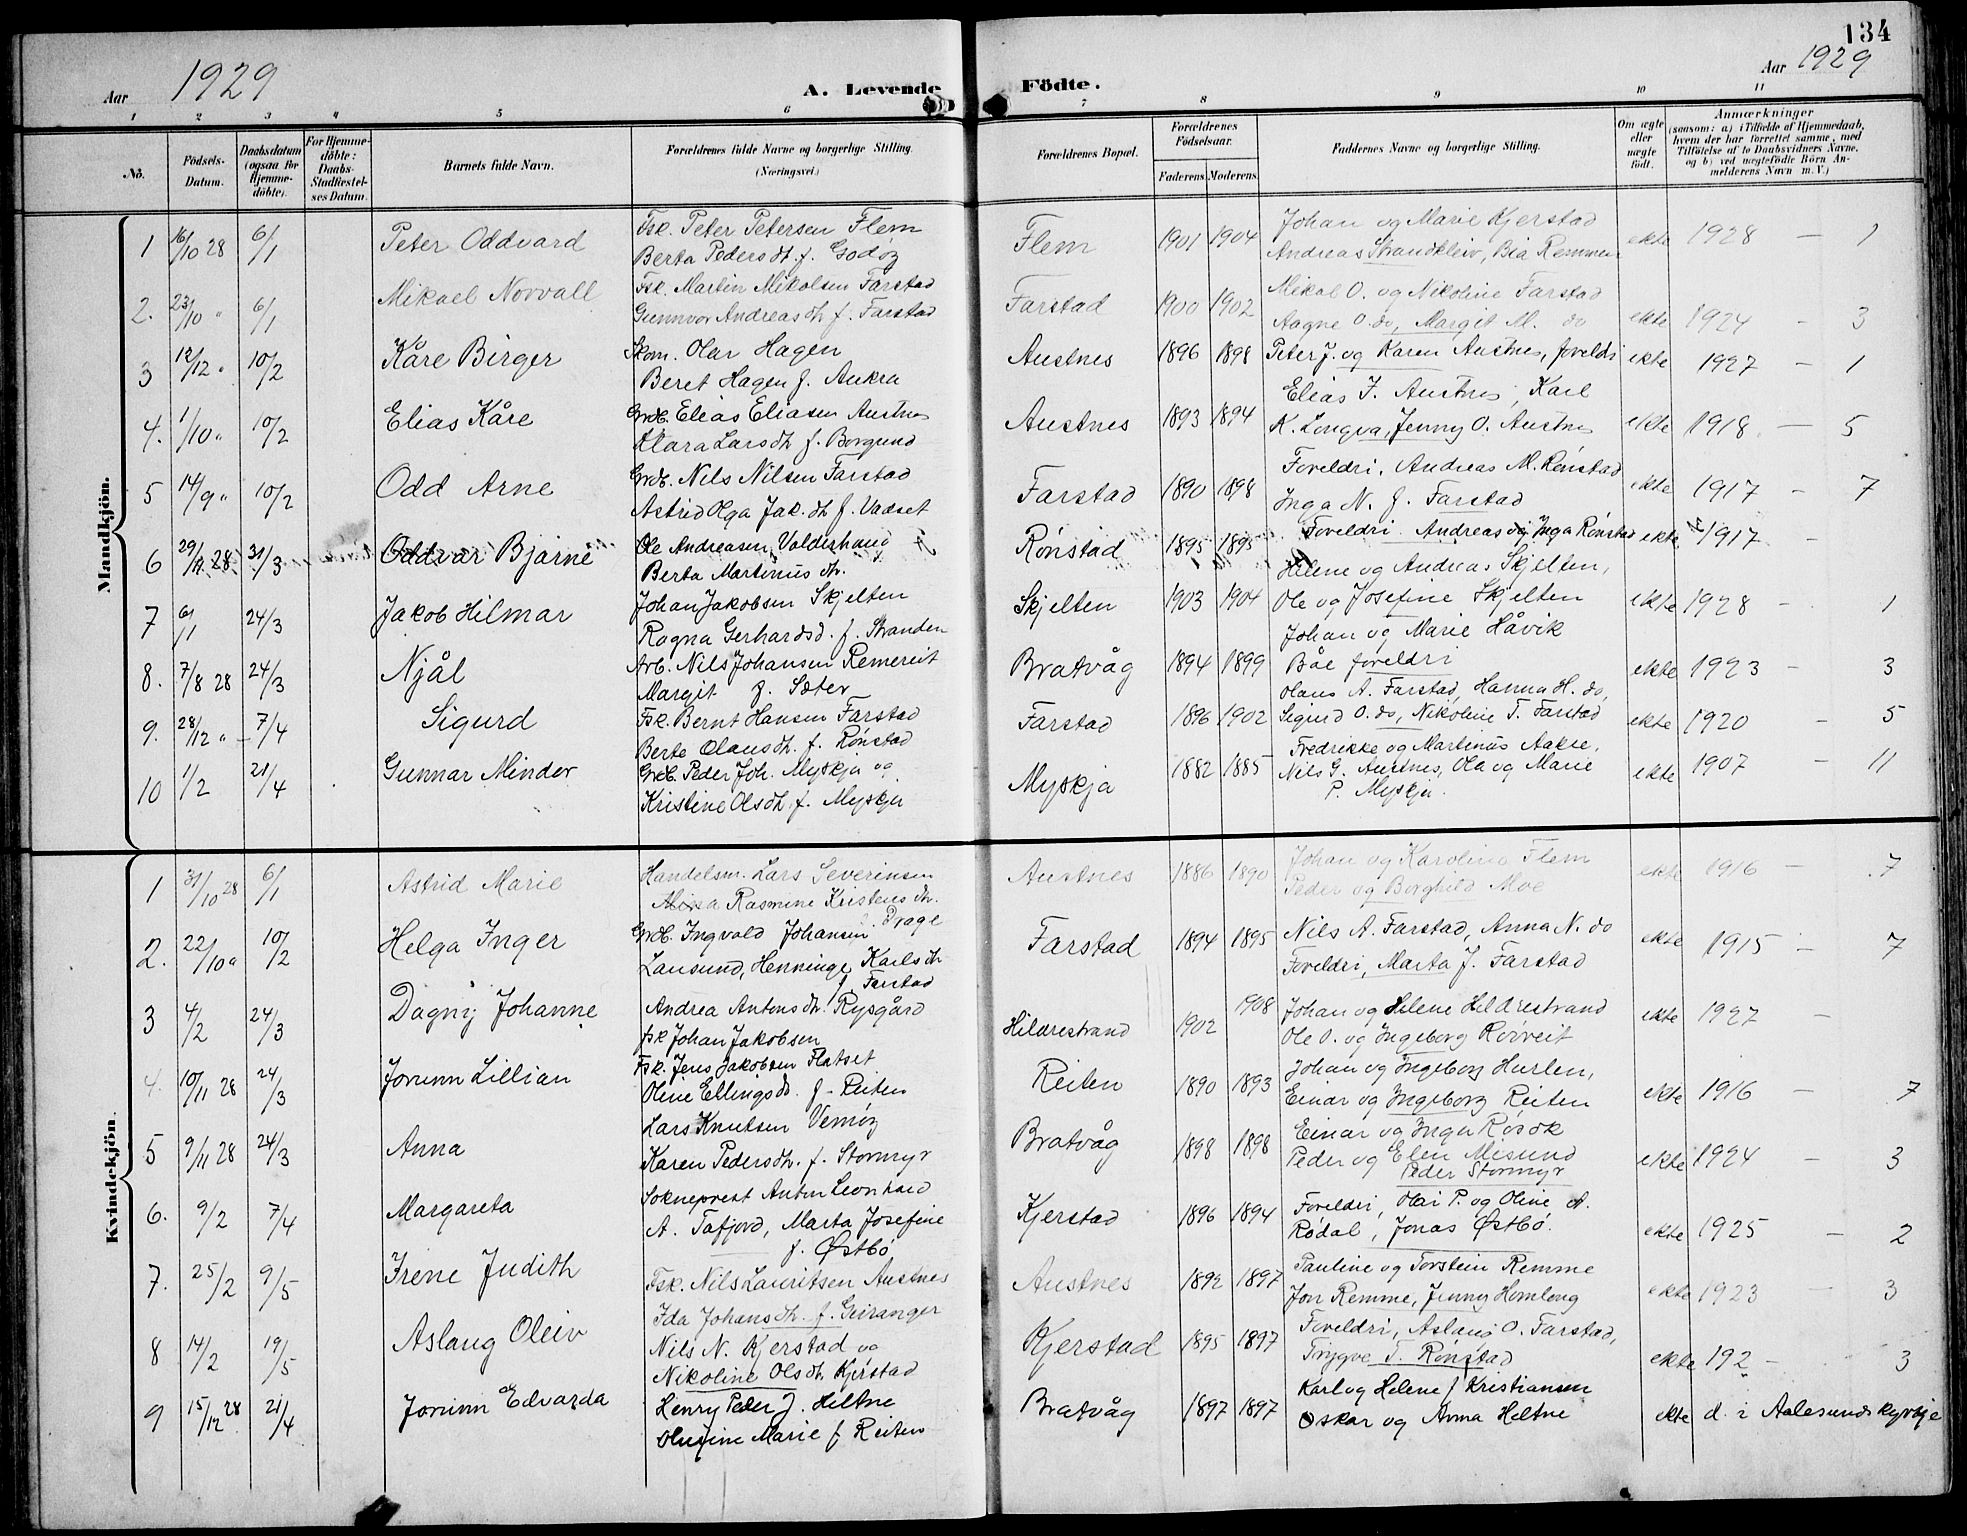 134
Aar 1929
A. Levende Födte.
Aar 1929
1 2 3 4 5 6 7 8 9 10 11
No.
Födsels-Datum.
Daabsdatum (ogsaa for Hjemmedöbte).
For Hjemmedöbte: Daabs-Stadfæstelses Datum.
Barnets fulde Navn.
Forældrenes fulde Navne og borgerlige Stilling. (Næringsvei.)
Forældrenes Bopæl.
Forældrenes Födselsaar.
Faderens Moderens
Faddernes Navne og borgerlige Stilling.
Om ægte eller uægte födt.
Anmærkninger
(saasom: a) i Tilfælde af Hjemmedaab, hvem der har forrettet samme, med Tilföielse af to Daabsvidners Navne, og b) ved uægtefödte Börn Anmelderens Navn m. V.)
Mandkjön.
1 16/10 28 6/1 Peter Oddvard Fsk. Peter Petersen Flem Flem 1901 1904 Johan og Marie Kjerstad ekte 1928 — 1
Berta Pedersdt. f. Godøy Andreas Strandkleiv, Bia Remmen
2. 23/10 " 6/1 Mikael Norvall Fsk. Martin Mikalsen Farstad Farstad 1900 1902 Mikal O. og Nikoline Farstad ekte 1924 — 3
Gunnvor Andreasdt. f. Farstad Aagne O. do, Margit M. do
3 12/12 " 10/2 Kåre Birger Skom. Olar Hagen Austnes 1896 1898 Peter J. og Karen Austnes, foreldri ekte 1927 — 1
Beret Hagen f. Aukra
4. 1/10 " 10/2 Elias Kåre Grdb. Elias Eliasen Austnes Austnes 1893 1894 Elias J. Austnes, Karl ekte 1918 — 5
Klara Larsdt. f. Borgund K. Longva, Jenny O. Austnes
5 14/9 " 10/2 Odd Arne Grdb. Nils Nilsen Farstad Farstad 1890 1898 Foreldri, Andreas M. Rønstad ekte 1917 — 7
Astrid Olga Jak. dt. f. Vadset Inga N. f. Farstad
6 28 31/3 Oddvar Bjarne Ole Andreasen Valderhaug Rønstad 1895 1895 Foreldri Andreas og Inga Rønstad ekte 1917 —
Berta Martinus dt.
7 6/1 24/3 Jakob Hilmar Johan Jakobsen Skjelten Skjelten 1903 1904 Helene og Andreas Skjelten, ekte 1928 — 1
Ragna Gerhardsd. f. Stranden Ole og Josefine Skjelten
8. 7/8 28 24/3 Njål Arb. Nils Johansen Remereit Bratvåg 1894 1899 Johan og Marie Håvik ekte 1923 — 3
Margit f. Sæter Båe foreldri
9. 28/12 " 7/4 Sigurd Fsk. Bernt Hansen Farstad Farstad 1896 1902 Olaus A. Farstad, Hanna H. do, ekte 1920 — 5
Berte Olausdt. f. Rønstad Sigurd O. do, Nikoline T. Farstad
10 1/2 21/4 Gunnar Mindor Grdb. Peder Joh. Myskja og Myskja 1882 1885 Fredrikke og Martinus Aakre, ekte 1907 — 11
Kristine Olsdt. f. Myskja Nils G. Austnes, Ola og Marie
P. Myskja.
Kvindekjön.
1 31/10 28 6/1 Astrid Marie Handelsm. Lars Severinsen Austnes 1886 1890 Johan og Karoline Flem ekte 1916 — 7
Rasmine Kristensdt. f. Drage Peder og Borghild Moe
2. 22/10 " 10/2 Helga Inger Grdb. Ingvald Johansen Farstad 1894 1895 Nils A. Farstad, Anna N. do ekte 1915 — 7
Lausund, Henninge Karlsdt. Foreldri, Marta J. Farstad
f. Farstad
3 4/2 24/3 Dagny Johanne Andrea Antonsdt. Rysgård Hildrestrand 1902 1908 Johan og Helene Hildrestrand ekte 1927 —
fsk Johan Jakobsen Ole O. og Ingeborg Rørveit
4. 10/11 28 24/3 Jorunn Lillian Fsk. Jens Jakobsen Flatset Reiten 1890 1893 Johan og Ingeborg Hurlen, ekte 1916 — 7
Oline Ellingsdt. f. Reiten Einar og Ingeborg Reiten
5 9/11 28 24/3 Anna Lars Knutsen Vemøy Bratvåg 1898 1898 Einar og Inga Røsok ekte 1924 — 3
Karen Pedersdt. f. Stormyr Peder og Elen Misund
Peder Stormyr
6. 9/2 7/4 Margareta Sokneprest Anton Leonhard Kjerstad 1896 1894 Foreldri, Olai P. og Oline A. ekte 1925 — 2
A. Tafjord, Marta Josefine Rødal, Jonas Østbø.
f. Østbø
7. 25/2 9/5 Irene Judith Fsk. Nils Lauritsen Austnes Austnes 1892 1897 Pauline og Torstein Remme ekte 1923 — 3
Ida Johansdt. f. Geiranger Jon Remme, Jenny Homlong
8 14/2 19/5 Aslaug Oleiv Nils N. Kjerstad og Kjerstad 1895 1897 Foreldri, Aslaug O. Farstad, ekte 192 — 3
Nikoline Olsdt. Kjerstad Trygve T. Rønstad
9 15/12 28 21/4 Jorunn Edvarda Henry Peder J. Heltne Bratvåg 1897 1897 Karl og Helene J Kristiansen ekte d. i Aalesunds kyrkje
Olufine Marie f Reiten Oskar og Anna Heltne